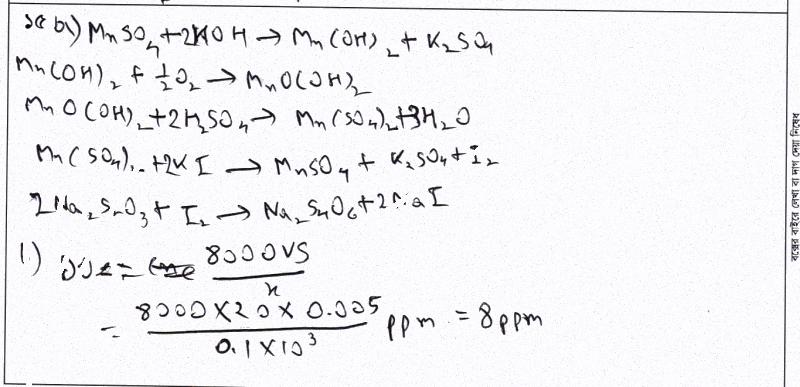 ১৫ b) MnSO₄ + 2KOH → Mn(OH)₂ + K₂SO₄
Mn(OH)₂ + ½O₂ → MnO(OH)₂
MnO(OH)₂ + 2H₂SO₄ → Mn(SO₄)₂ + 3H₂O
Mn(SO₄)₂ + 2KI → MnSO₄ + K₂SO₄ + I₂
2Na₂S₂O₃ + I₂ → Na₂S₄O₆ + 2NaI
1) = 8000VS / x
= 8000 × 20 × 0.005 / 0.1 × 10³ ppm = 8 ppm
বক্সের বাইরে লেখা বা দাগ দেয়া নিষেধ